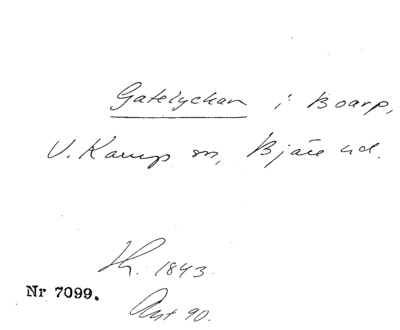 Gatelyckan i Boarp,
V. Karup sn, Bjäre hd.
Lh. 1843.
Nr 7099.
Akt 90.